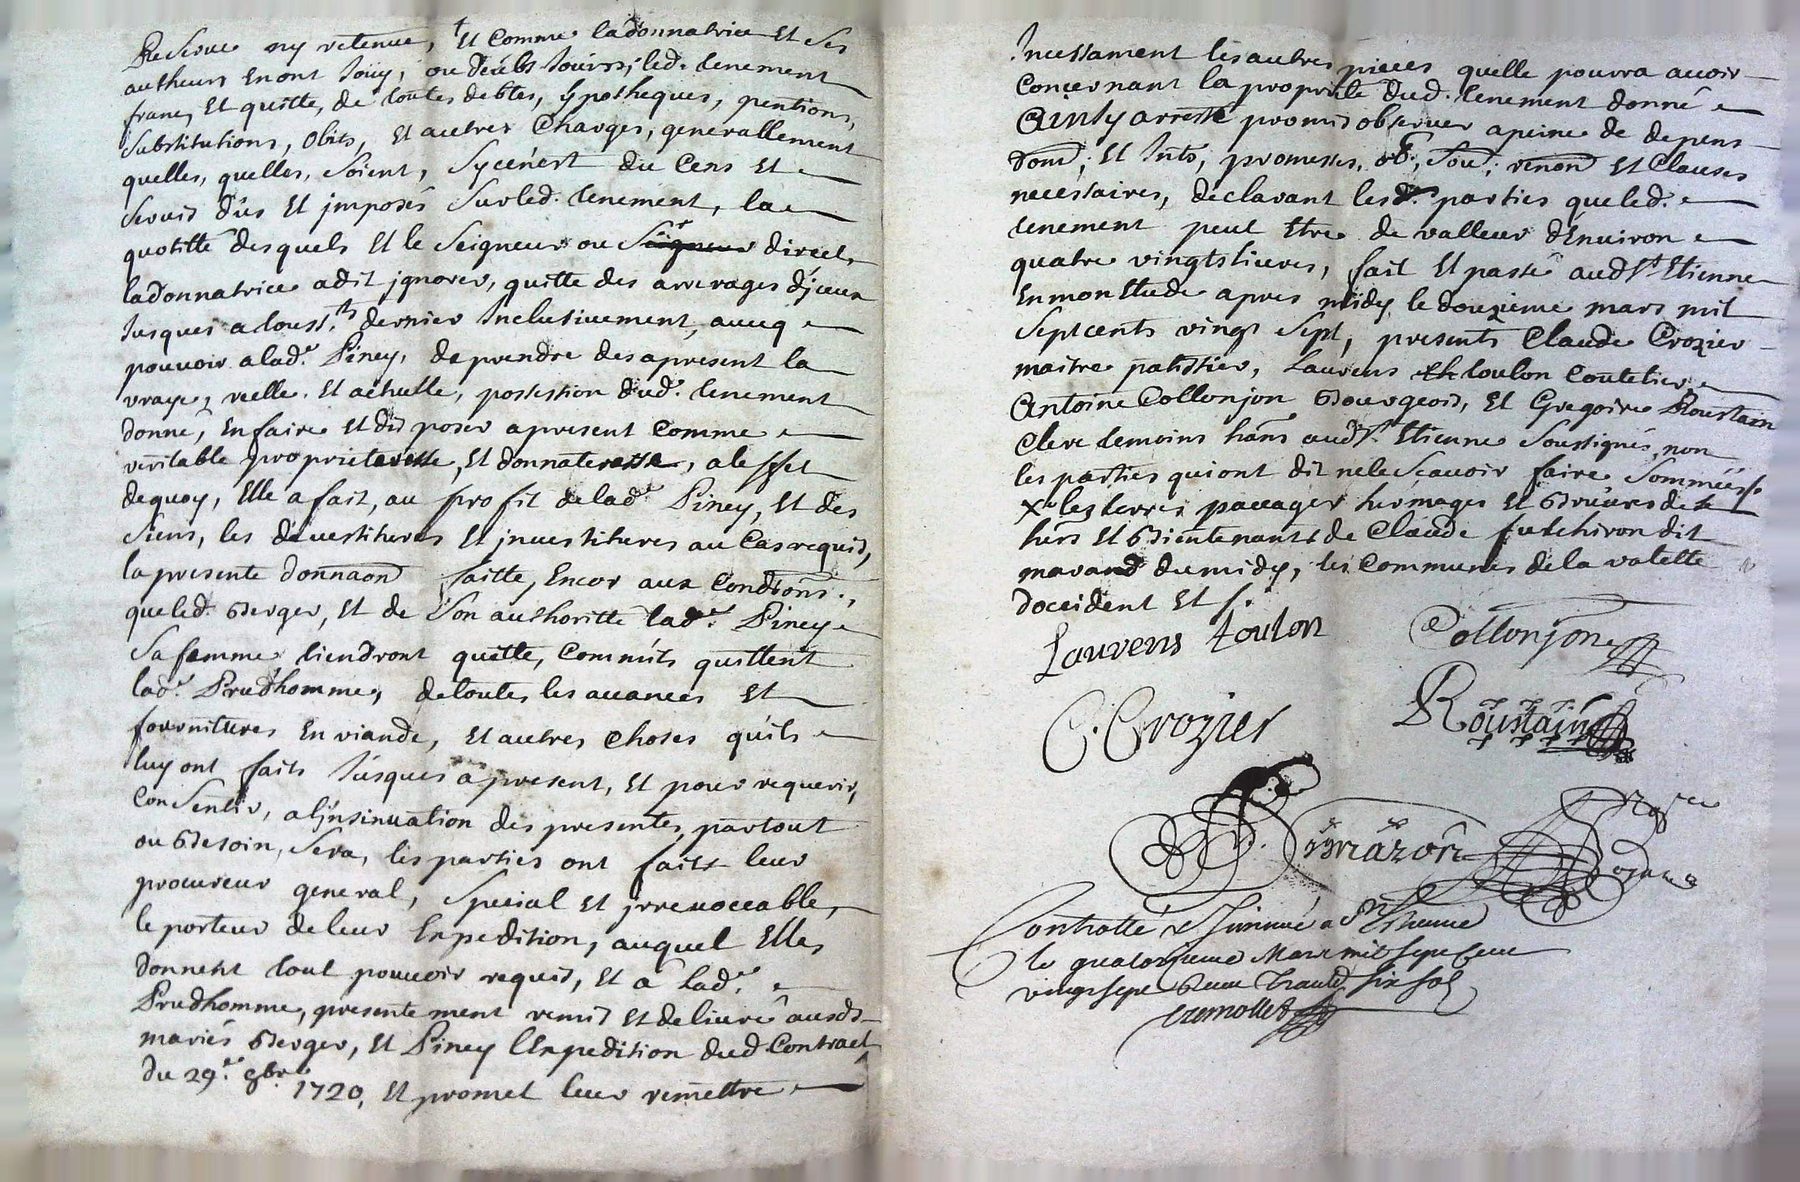 Reserve ny retenue, + Et Comme ladonnatrice Et Ses
autheurs En ont Joüy, ou deübs Jouirs, led. tenement
franc, Et quitte, de toutes debtes, ypotheques, pentions,
Substitutions, obits, Et autres Charges, generallement
quelles, quelles, Soient, Sycenest du Cens Et
Servis dûs Et jmposés Surled. tenement, la
quotitté desquels Et le Seigneur ou Seigneur direct
ladonnatrice adit jgnorer, quitte des arrerages d'jceux
Jusques a touss.ts dernier Jnclusivement, avecq
pouvoir alad.e Piney, de prendre des apresent la
vraye, reelle, Et actuelle, possession dud. tenement
donné, En faire Et disposer apresent Comme
veritable proprietaresse, Et donnateresse, aleffet
dequoy, Elle a fait, au profit delad.e Piney, Et des
Siens, les devestitures Et jnvestitures au Cas requis,
la presente donnaon faitte, Encor aux Condions.,
que led. Berger, Et de Son authoritté lad.e Piney
Sa femme, tiendront quitte, Comm'ils quittent
lad.e Prudhomme, detoutes les avances Et
fournitures En viande, Et autres Choses qu'ils
luy ont faits Jusques apresent, Et pour requerir,
ConSentir, al'jnsinuation des presentes, partout
ou Besoin, Sera, les parties ont faits leur
procureur general, Special Et jrrevoccable,
le porteur de leur Expedition, auquel Elles
donnent tout pouvoir requis, Et a lad.e
Prudhomme, presentement remis Et delivré ausds
mariés Berger, Et Piney l'Expedition dud Contract
du 29.e 8bre 1720, Et promet leur remettre
Jncessament les autres pieces quelle pourra avoir
Concernant la proprieté dud. tenement donné
Ainsy arresté promis observer apeine de depens
dom; Et Jnts, promesses, ob, Soub, renond Et Clauses
necessaires, declarant lesd. parties que led.
tenement peut Etre de valleur d'Environ
quatre vingts livres, fait Et passé aud St Etienne
En mon Etude apres midy le douzieme mars mil
Septcents vingt Sept, presents Claude Crozier
maitre patissier, Laurens toulon Coutelier
Antoine Collonjon Bourgeois, Et Gregoire Roustain
Clerc temoins hans aud St Etienne Soussignés, non
les parties qui ont dit ne le Scavoir faire Sommées
X les terres paccages hermages Et Bruieres des
hers Et Bientenants de Claude futchiron dit
marand de midy, les Communes dela valette
doccident Et f.
Laurens toulon
Collonjon
C. Crozier
Roustain
Controllé & Jnsinué a St Etienne
le quatorzieme Mars mil sept cent
vingt sept six sols